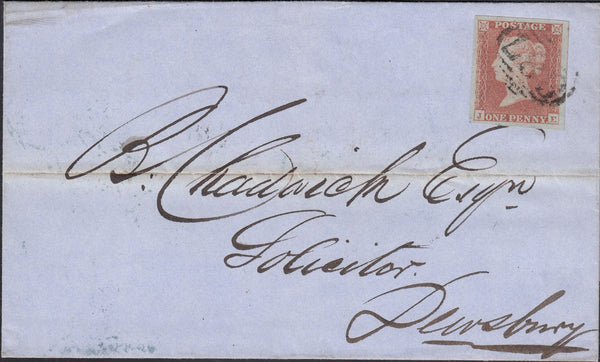 POSTAGE
ONE PENNY
J E
B. Chadwick Esqr
Solicitor.
Dewsbury